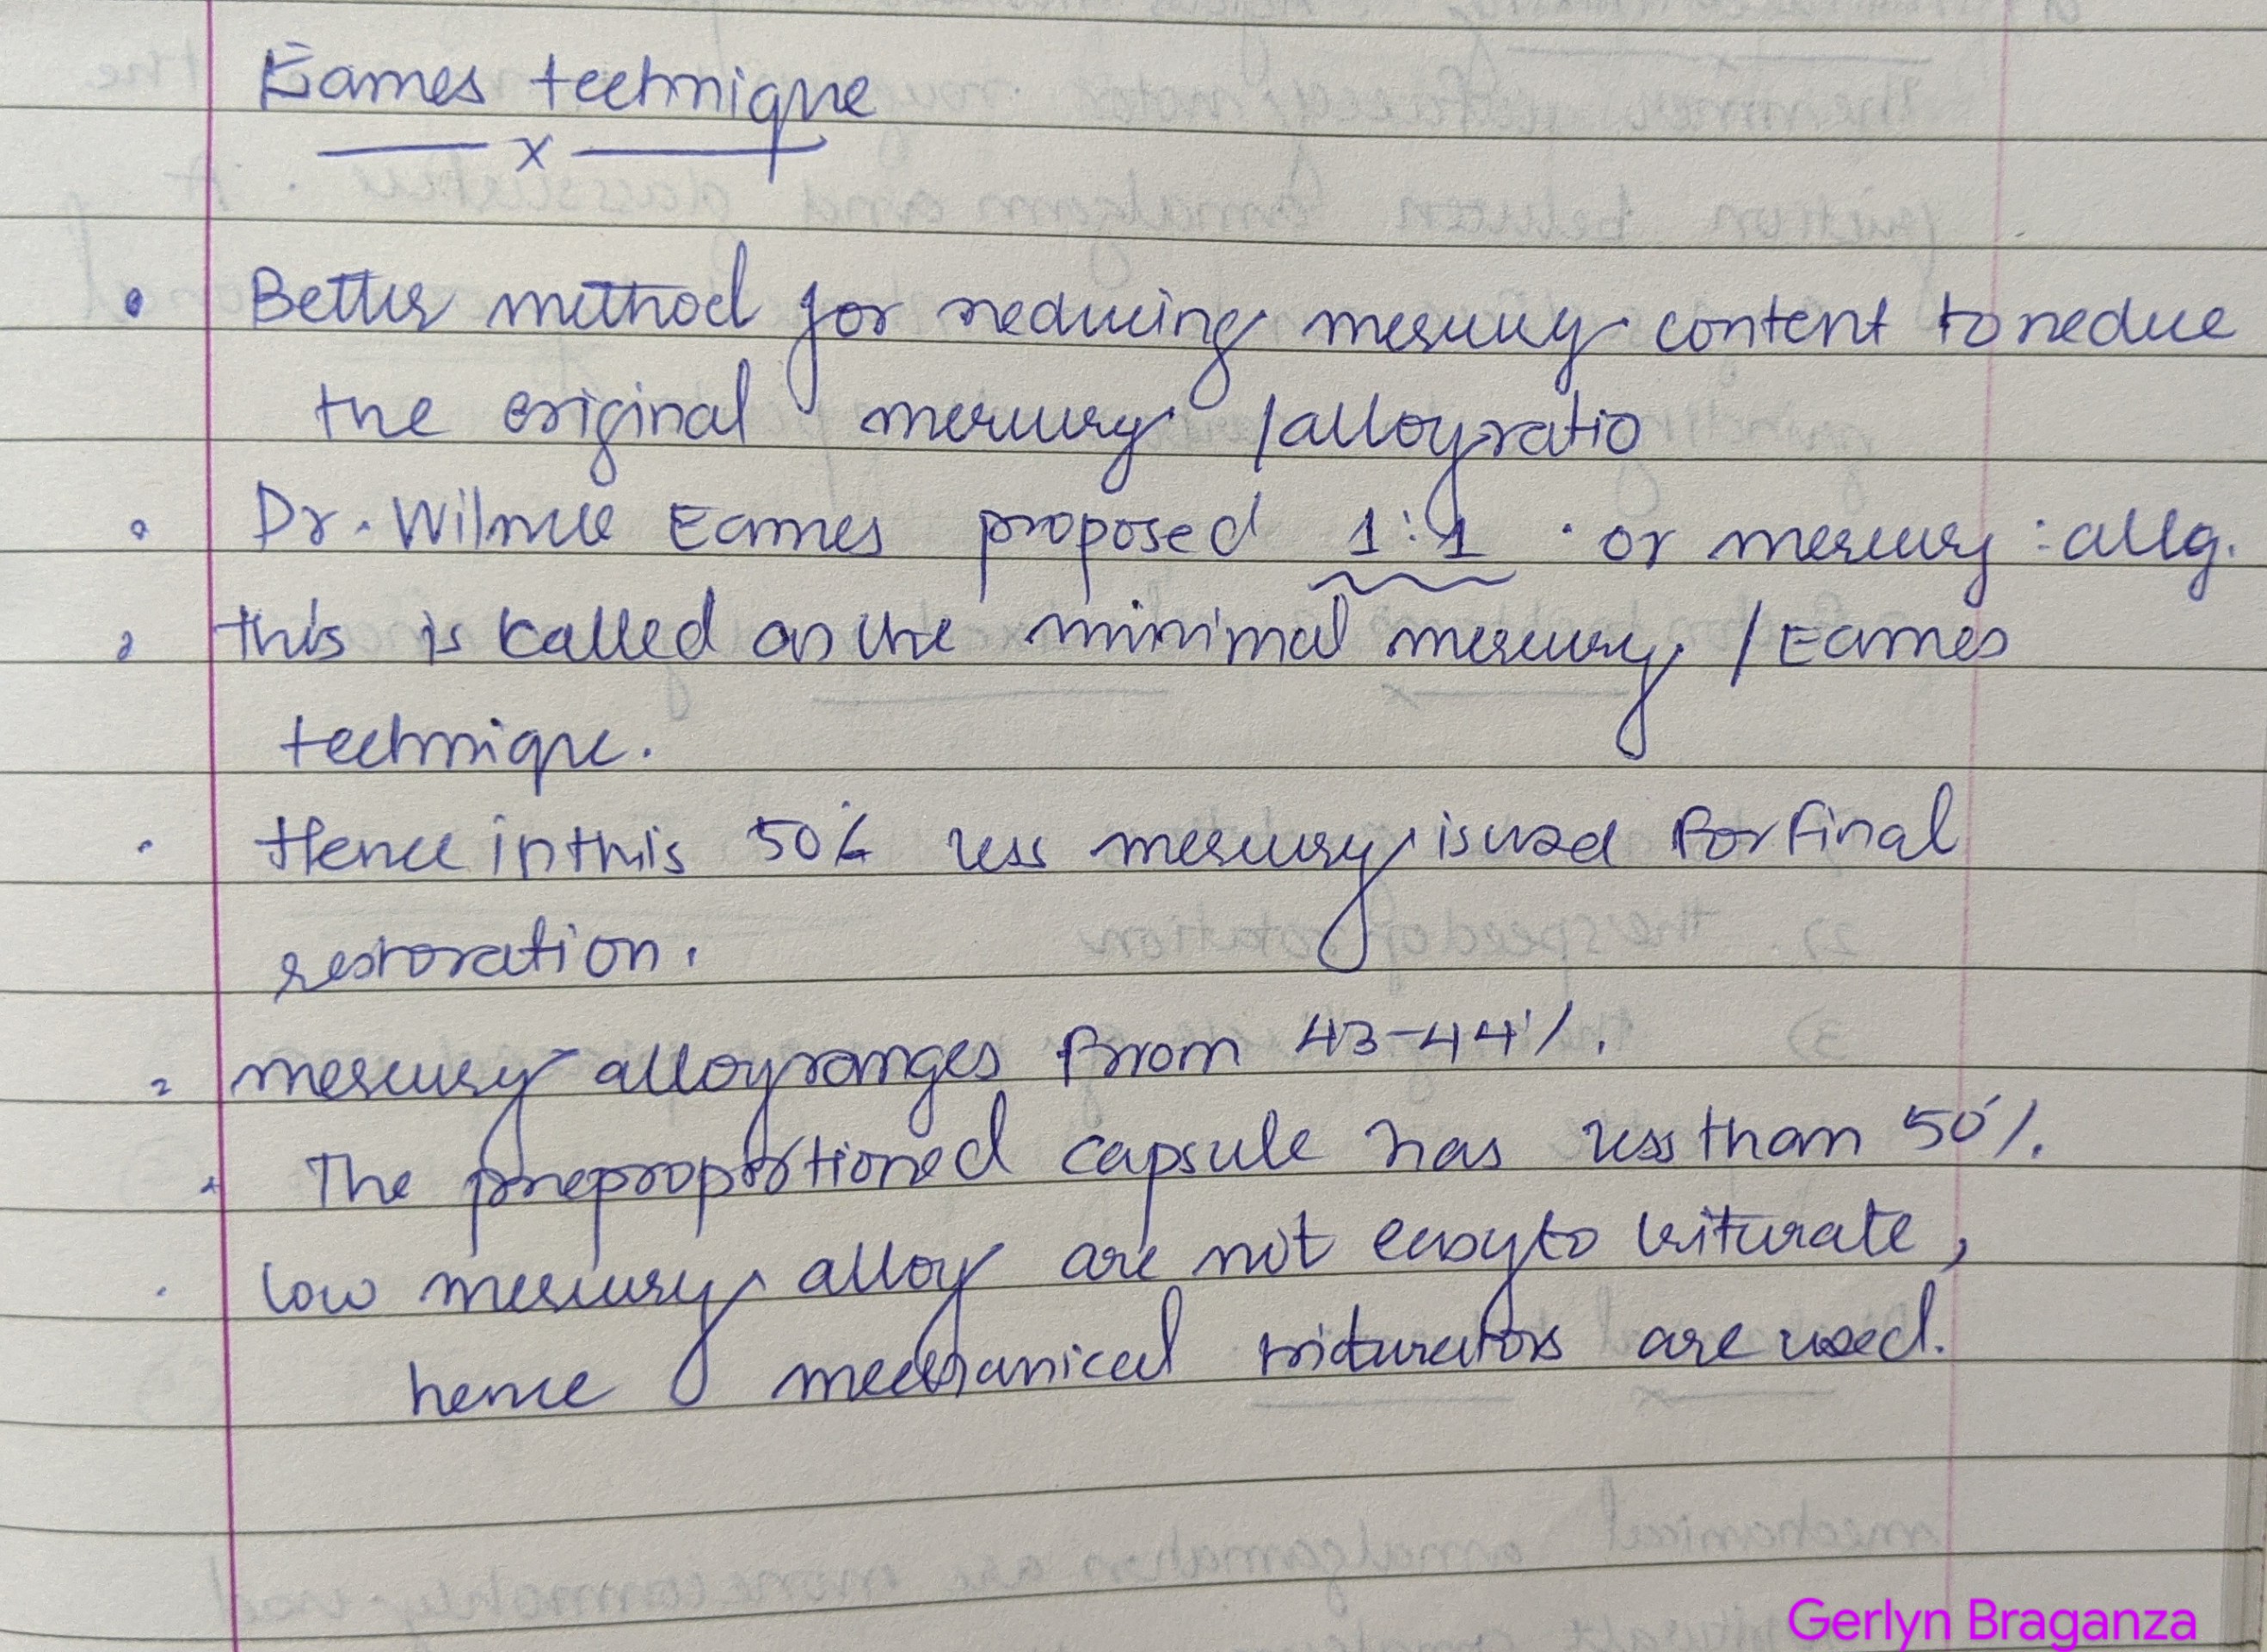 Eames technique
x
• Better method for reducing mercury content to reduce
the original mercury /alloy ratio
• Dr. Wilmer Eames proposed 1:1 . or mercury : alloy.
• this is called as the minimal mercury / Eames
technique.
• Hence in this 50% less mercury is used for final
restoration.
• mercury alloy ranges from 43-44%.
• The preproportioned capsule has less than 50%.
• low mercury alloy are not easy to triturate,
hence mechanical triturators are used.
Gerlyn Braganza